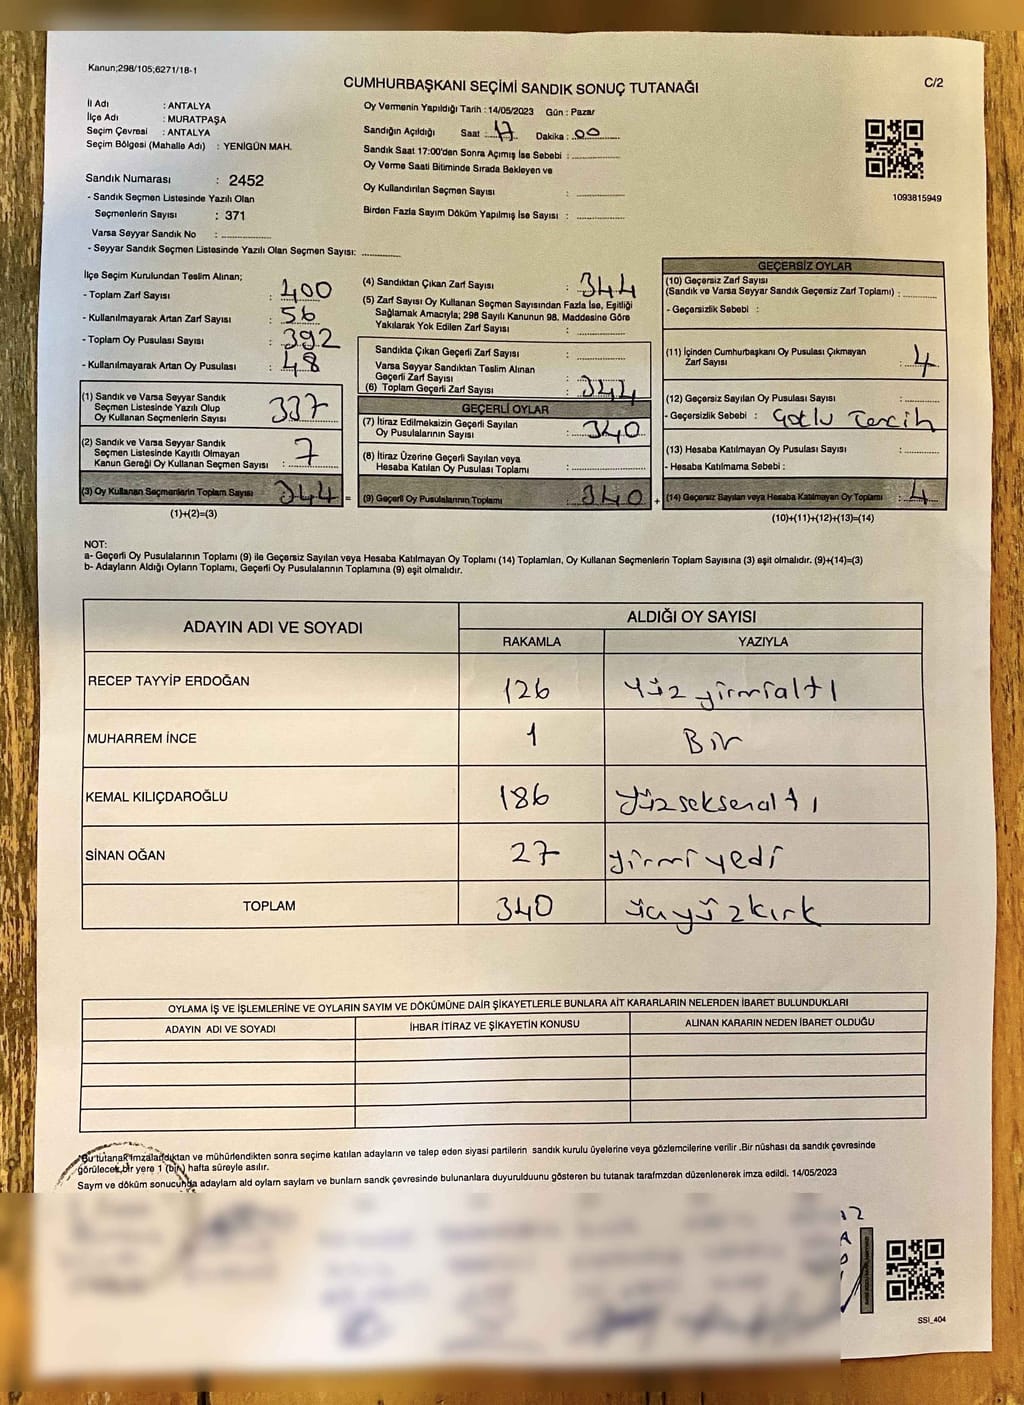 Kanun;298/105;6271/18-1
CUMHURBAŞKANI SEÇİMİ SANDIK SONUÇ TUTANAĞI
C/2
İl Adı : ANTALYA
İlçe Adı : MURATPAŞA
Seçim Çevresi : ANTALYA
Seçim Bölgesi (Mahalle Adı) : YENİGÜN MAH.
Sandık Numarası : 2452
- Sandık Seçmen Listesinde Yazılı Olan
Seçmenlerin Sayısı : 371
Varsa Seyyar Sandık No :
- Seyyar Sandık Seçmen Listesinde Yazılı Olan Seçmen Sayısı:
Oy Vermenin Yapıldığı Tarih : 14/05/2023 Gün : Pazar
Sandığın Açıldığı Saat : 17 Dakika : 00
Sandık Saat 17:00'den Sonra Açımış İse Sebebi :
Oy Verme Saati Bitiminde Sırada Bekleyen ve
Oy Kullandırılan Seçmen Sayısı :
Birden Fazla Sayım Döküm Yapılmış İse Sayısı :
1093815949
İlçe Seçim Kurulundan Teslim Alınan;
- Toplam Zarf Sayısı : 400
- Kullanılmayarak Artan Zarf Sayısı : 56
- Toplam Oy Pusulası Sayısı : 392
- Kullanılmayarak Artan Oy Pusulası : 48
(1) Sandık ve Varsa Seyyar Sandık
Seçmen Listesinde Yazılı Olup
Oy Kullanan Seçmenlerin Sayısı : 337
(2) Sandık ve Varsa Seyyar Sandık
Seçmen Listesinde Kayıtlı Olmayan
Kanun Gereği Oy Kullanan Seçmen Sayısı : 7
(3) Oy Kullanan Seçmenlerin Toplam Sayısı 344 =
(1)+(2)=(3)
(4) Sandıktan Çıkan Zarf Sayısı : 344
(5) Zarf Sayısı Oy Kullanan Seçmen Sayısından Fazla İse, Eşitliği
Sağlamak Amacıyla; 298 Sayılı Kanunun 98. Maddesine Göre
Yakılarak Yok Edilen Zarf Sayısı :
Sandıkta Çıkan Geçerli Zarf Sayısı :
Varsa Seyyar Sandıktan Teslim Alınan
Geçerli Zarf Sayısı :
(6) Toplam Geçerli Zarf Sayısı : 344
GEÇERLİ OYLAR
(7) İtiraz Edilmeksizin Geçerli Sayılan
Oy Pusulalarının Sayısı : 340
(8) İtiraz Üzerine Geçerli Sayılan veya
Hesaba Katılan Oy Pusulası Toplamı :
(9) Geçerli Oy Pusulalarının Toplamı : 340 +
GEÇERSİZ OYLAR
(10) Geçersiz Zarf Sayısı
(Sandık ve Varsa Seyyar Sandık Geçersiz Zarf Toplamı) :
- Geçersizlik Sebebi :
(11) İçinden Cumhurbaşkanı Oy Pusulası Çıkmayan
Zarf Sayısı : 4
(12) Geçersiz Sayılan Oy Pusulası Sayısı :
- Geçersizlik Sebebi : Çoklu Tercih
(13) Hesaba Katılmayan Oy Pusulası Sayısı :
- Hesaba Katılmama Sebebi :
(14) Geçersiz Sayılan veya Hesaba Katılmayan Oy Toplamı : 4
(10)+(11)+(12)+(13)=(14)
NOT:
a- Geçerli Oy Pusulalarının Toplamı (9) ile Geçersiz Sayılan veya Hesaba Katılmayan Oy Toplamı (14) Toplamları, Oy Kullanan Seçmenlerin Toplam Sayısına (3) eşit olmalıdır. (9)+(14)=(3)
b- Adayların Aldığı Oyların Toplamı, Geçerli Oy Pusulalarının Toplamına (9) eşit olmalıdır.
ADAYIN ADI VE SOYADI
ALDIĞI OY SAYISI
RAKAMLA YAZIYLA
RECEP TAYYİP ERDOĞAN 126 Yüz yirmialtı
MUHARREM İNCE 1 Bir
KEMAL KILIÇDAROĞLU 186 Yüzseksenaltı
SİNAN OĞAN 27 yirmiyedi
TOPLAM 340 üçyüzkırk
OYLAMA İŞ VE İŞLEMLERİNE VE OYLARIN SAYIM VE DÖKÜMÜNE DAİR ŞİKAYETLERLE BUNLARA AİT KARARLARIN NELERDEN İBARET BULUNDUKLARI
ADAYIN ADI VE SOYADI İHBAR İTİRAZ VE ŞİKAYETİN KONUSU ALINAN KARARIN NEDEN İBARET OLDUĞU
Bu tutanak imzalandıktan ve mühürlendikten sonra seçime katılan adayların ve talep eden siyasi partilerin sandık kurulu üyelerine veya gözlemcilerine verilir .Bir nüshası da sandık çevresinde
görülecek bir yere 1 (bir) hafta süreyle asılır.
Sayım ve döküm sonucunda adayların ald oyların sayların ve bunların sandk çevresinde bulunanlara duyurulduunu gösteren bu tutanak tarafmzdan düzenlenerek imza edildi. 14/05/2023
SSI_404